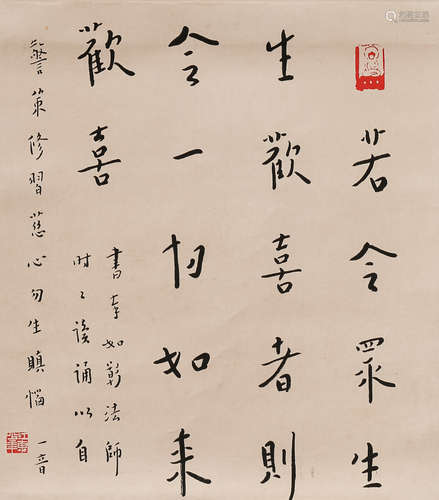 若令眾生
生歡喜者則
令一切如來
歡喜
書奉如影法師
時〻讀誦以自
警策修習慈心勿生瞋惱
一音